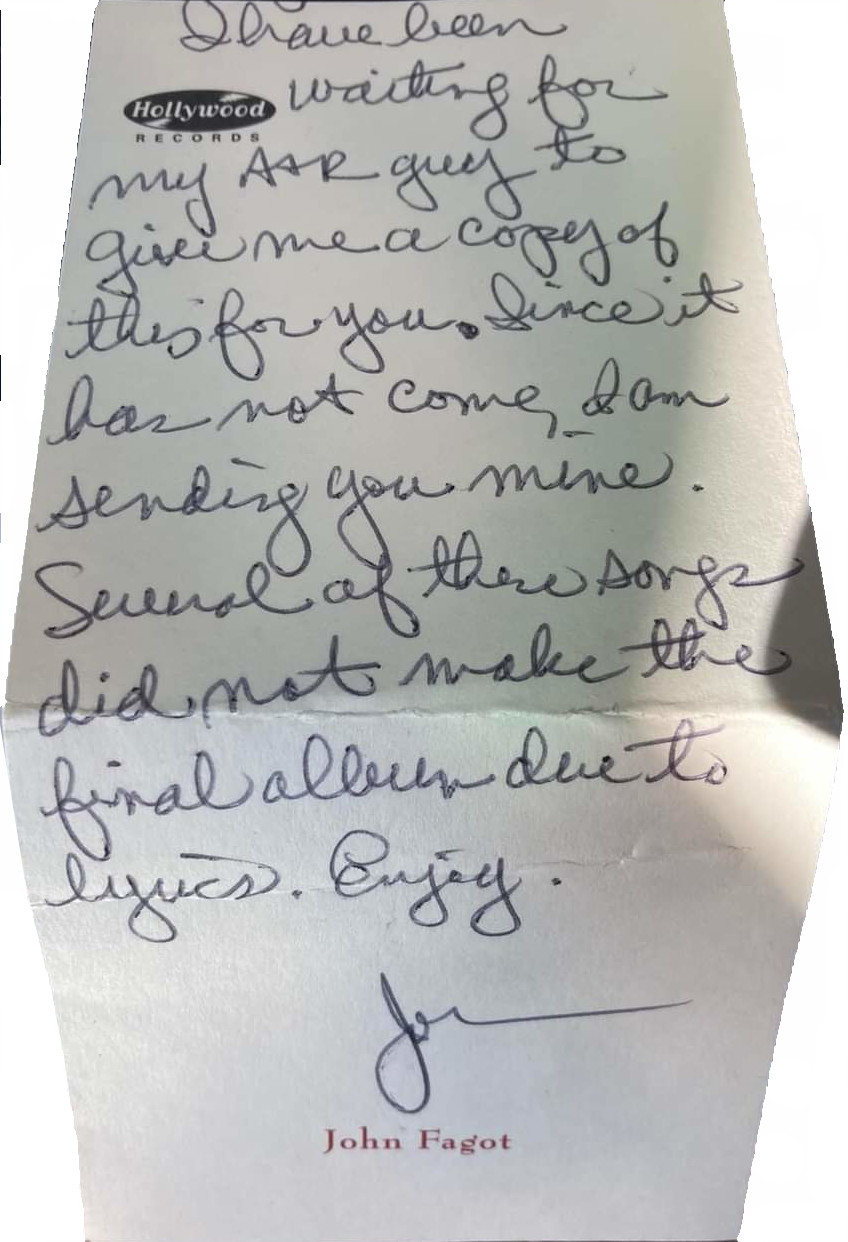 I have been
Hollywood
RECORDS
waiting for
my A&R guy to
give me a copy of
this for you. Since it
has not come, I am
sending you mine.
Several of these songs
did not make the
final album due to
lyrics. Enjoy.
John Fagot